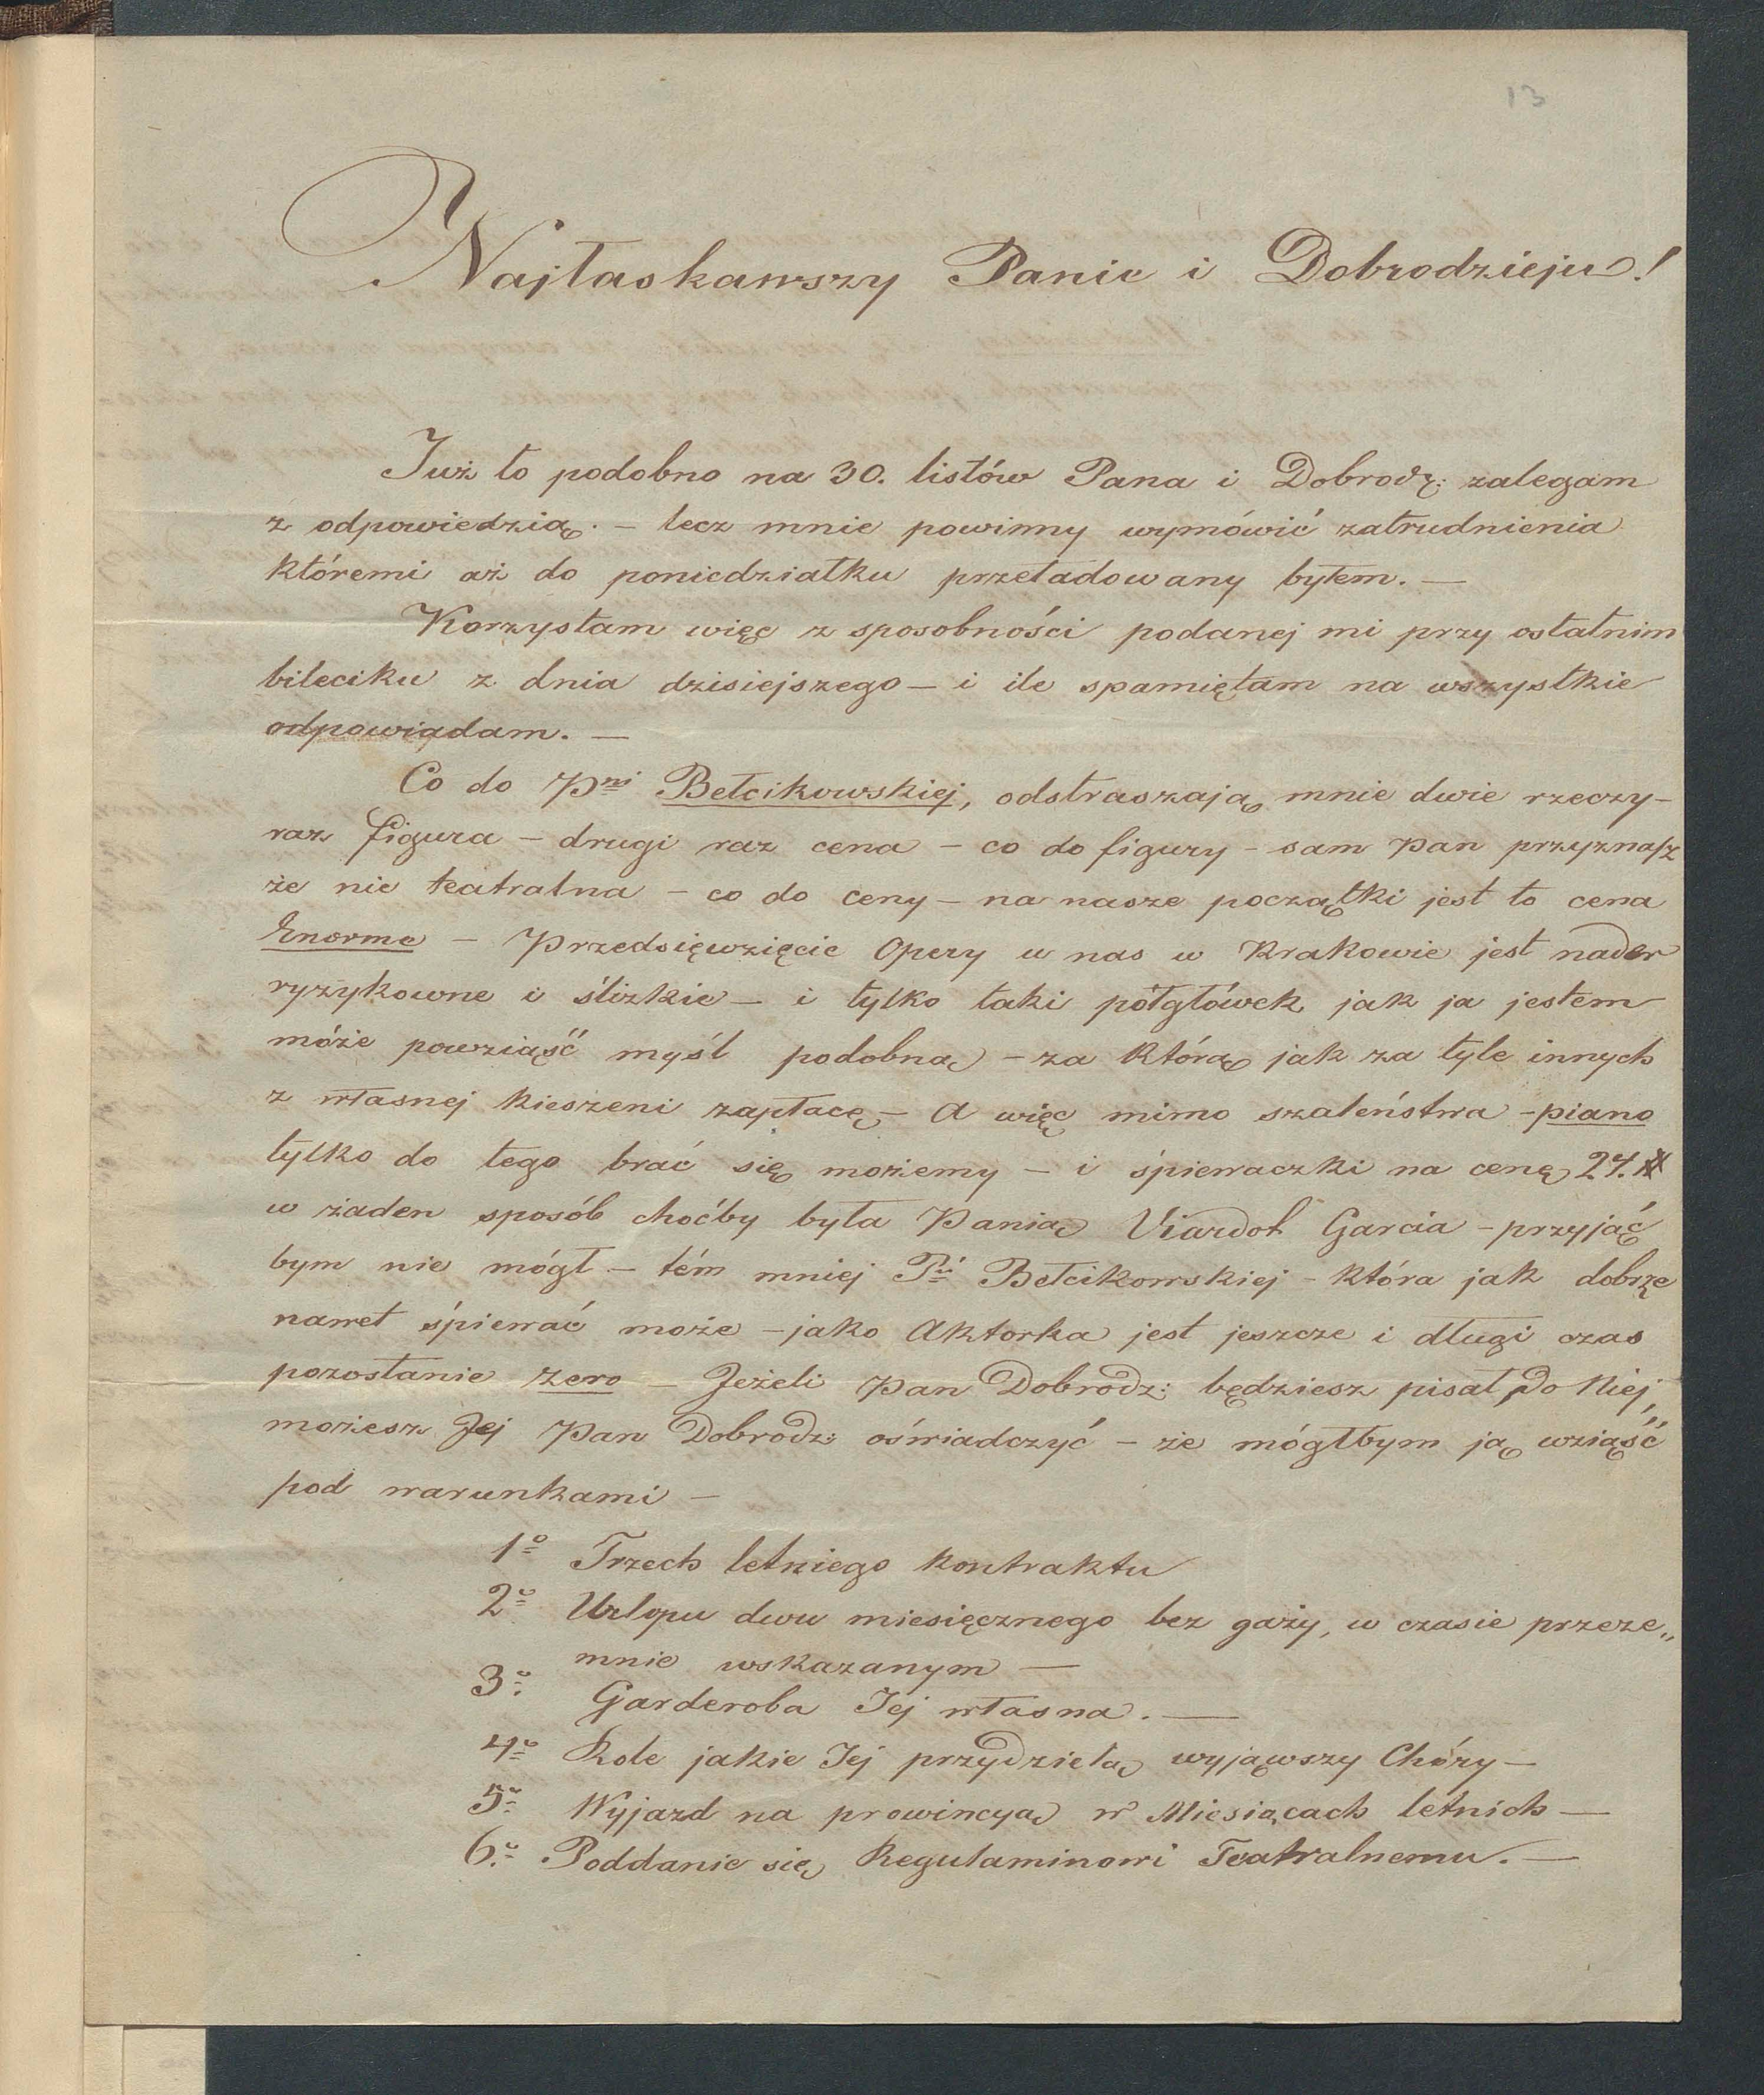 13
Najłaskawszy Panie i Dobrodzieju!
Już to podobno na 30. listów Pana i Dobrodz: zalegam
z odpowiedzią. – lecz mnie powinny wymówić zatrudnienia
któremi aż do poniedziałku przeładowany byłem. —
Korzystam więc z sposobności podanej mi przy ostatnim
bileciku z dnia dzisiejszego – i ile spamiętam na wszystkie
odpowiadam. —
Co do Pni Bełcikowskiej, odstraszają mnie dwie rzeczy –
raz figura – drugi raz cena – co do figury – sam Pan przyznasz
że nie teatralna – co do ceny – na nasze początki jest to cena
Enorme – Przedsięwzięcie Opery u nas w Krakowie jest nader
ryzykowne i ślizkie – i tylko taki półgłówek jak ja jestem
móże powziąść myśl podobną – za którą jak za tyle innych
z własnej kieszeni zapłacę – A więc mimo szaleństwa – piano
tylko do tego brać się możemy – i śpiewaczki na cenę 27.
w żaden sposób choćby była Panią Viardot Garcia – przyjąć
bym nie mógł – tém mniej Pi Bełcikowskiej – która jak dobrze
nawet śpiewać może – jako Aktorka jest jeszcze i długi czas
pozostanie zero – Jeżeli Pan Dobrodz: będziesz pisał do Niej,
możesz Jej Pan Dobrodz: oświadczyć – że mógłbym ją wziąść
pod warunkami –
1o Trzech letniego kontraktu
2o Urlopu dwu miesięcznego bez gaży, w czasie przeze„
mnie wskazanym —
3o Garderoba Jej własna. —
4o Role jakie Jej przydzielą wyjąwszy Chóry –
5o Wyjazd na prowincyą w Miesiącach letnich —
6o Poddanie się Regulaminowi Teatralnemu. —